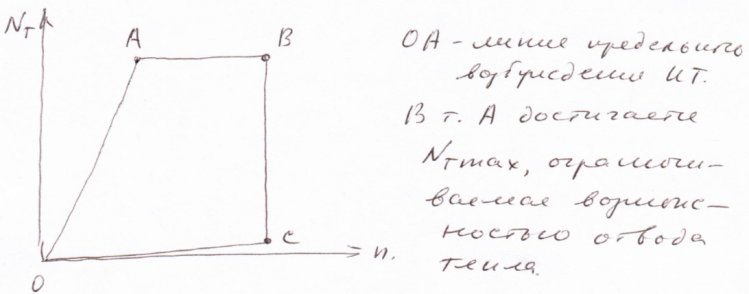 Nт
A
B
C
n.
O
OA - линия предельного
возбуждения ИТ.
В т. А достигается
Nтmax, ограничи-
ваемая возмож-
ностью отвода
тепла.